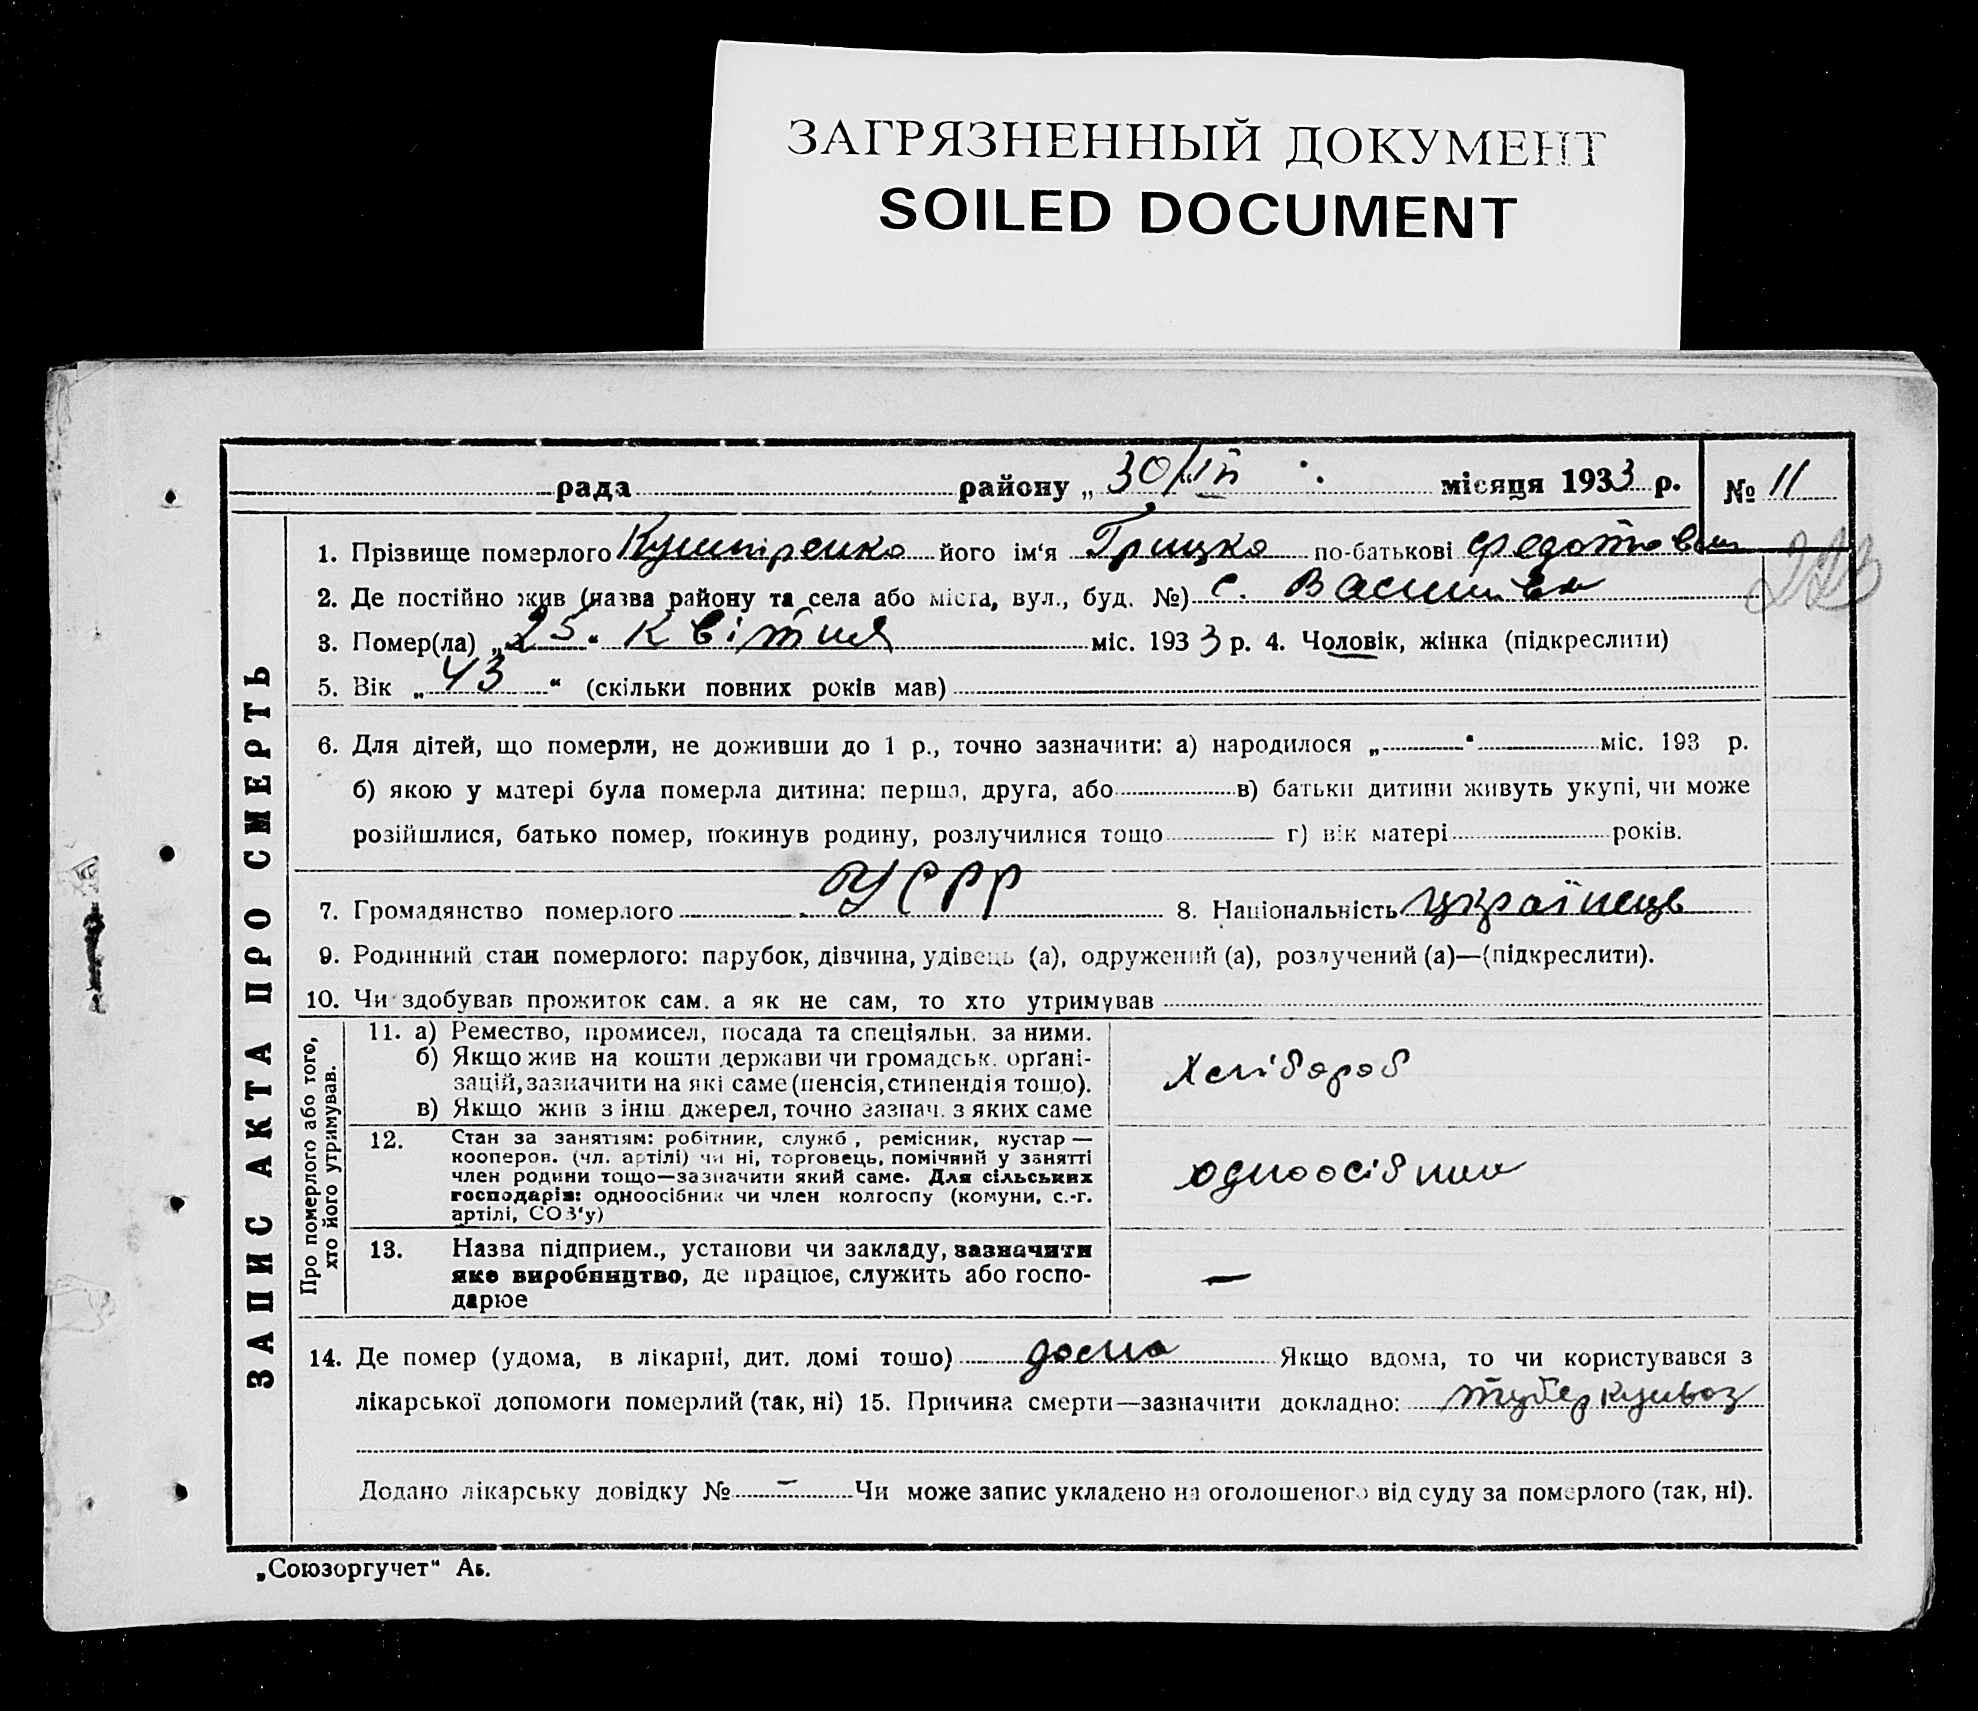 ЗАГРЯЗНЕННЫЙ ДОКУМЕНТ
SOILED DOCUMENT
рада району „ 30/IV місяця 1933 р. № 11
ЗАПИС АКТА ПРО СМЕРТЬ
1. Прізвище померлого Кушніренко його ім'я Грицко по-батькові Федотович
2. Де постійно жив (назва району та села або міста, вул., буд. №) с. Василівка
3. Помер(ла) „25“ Квітня міс. 1933 р. 4. Чоловік, жінка (підкреслити)
5. Вік „43“ (скільки повних років мав)
6. Для дітей, що померли, не доживши до 1 р., точно зазначити: а) народилося „ “ міс. 193 р.
б) якою у матері була померла дитина: перша, друга, або в) батьки дитини живуть укупі, чи може
розійшлися, батько помер, покинув родину, розлучилися тощо г) вік матері років.
7. Громадянство померлого УСРР 8. Національність українець
9. Родинний стан померлого: парубок, дівчина, удівець (а), одружений (а), розлучений (а)—(підкреслити).
10. Чи здобував прожиток сам, а як не сам, то хто утримував
Про померлого або того,
хто його утримував.
11. а) Ремество, промисел, посада та спеціяльн. за ними.
б) Якщо жив на кошти держави чи громадськ. орґані-
зацій, зазначити на які саме (пенсія, стипендія тощо).
в) Якщо жив з інш. джерел, точно зазнач. з яких саме
Хлібороб
12. Стан за заняттям: робітник, служб., ремісник, кустар —
кооперов. (чл. артілі) чи ні, торговець, помічний у занятті
член родини тощо—зазначити який саме. Для сільських
господарів: одноосібник чи член колгоспу (комуни, с.-г.
артілі, СОЗ'у)
одноосібник
13. Назва підприєм., установи чи закладу, зазначити
яке виробництво, де працює, служить або госпо-
дарює
—
14. Де помер (удома, в лікарні, дит. домі тощо) дома Якщо вдома, то чи користувався з
лікарської допомоги померлий (так, ні) 15. Причина смерти—зазначити докладно: туберкульоз
Додано лікарську довідку № — Чи може запис укладено на оголошеного від суду за померлого (так, ні).
„Союзоргучет“ Аб.